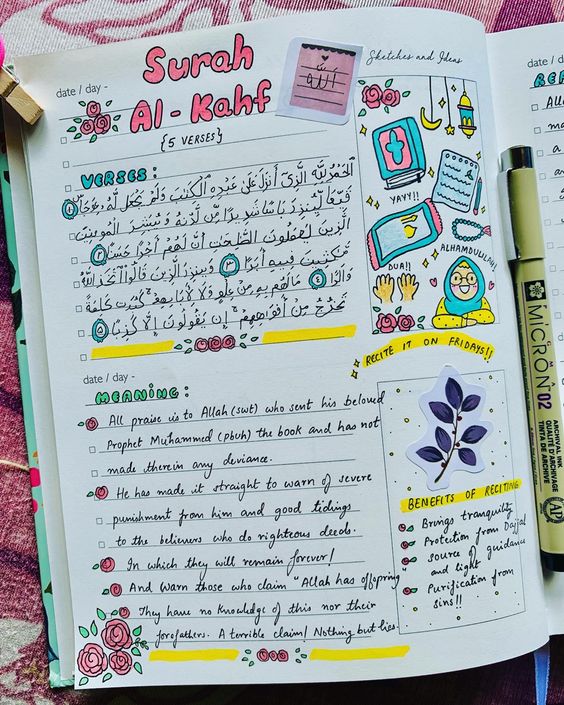 Surah
Al-Kahf
{5 VERSES}
date / day -
الله
Sketches and Ideas
VERSES:
الْحَمْدُ لِلّٰهِ الَّذِيْ أَنْزَلَ عَلٰى عَبْدِهِ الْكِتٰبَ وَلَمْ يَجْعَلْ لَّهُ عِوَجًا ١
قَيِّمًا لِّيُنْذِرَ بَأْسًا شَدِيْدًا مِّنْ لَّدُنْهُ وَيُبَشِّرَ الْمُؤْمِنِيْنَ
الَّذِيْنَ يَعْمَلُوْنَ الصّٰلِحٰتِ أَنَّ لَهُمْ أَجْرًا حَسَنًا ٢
مّٰكِثِيْنَ فِيْهِ أَبَدًا ٣ وَيُنْذِرَ الَّذِيْنَ قَالُوا اتَّخَذَ اللّٰهُ
وَلَدًا ٤ مَا لَهُمْ بِهِ مِنْ عِلْمٍ وَّلَا لِآبَائِهِمْ كَبُرَتْ كَلِمَةً
تَخْرُجُ مِنْ أَفْوَاهِهِمْ إِنْ يَقُوْلُوْنَ إِلَّا كَذِبًا ٥
YAYY!!
DUA!!
ALHAMDULILLAH!
RECITE IT ON FRIDAYS!!
date / day -
MEANING:
All praise is to Allah (swt) who sent his beloved
Prophet Muhammed (pbuh) the book and has not
made therein any deviance.
He has made it straight to warn of severe
punishment from him and good tidings
to the believers who do righteous deeds.
In which they will remain forever!
And Warn those who claim "Allah has offspring
They have no knowledge of this nor their
forefathers. A terrible claim! Nothing but lies.
BENEFITS OF RECITING
Brings tranquility
Protection from Dajjal
source of guidance
and light
Purification from
sins!!
MICRON 02
ARCHIVAL INK
QUALITÉ D'ARCHIVAGE
TINTA DE ARCHIVE
AP